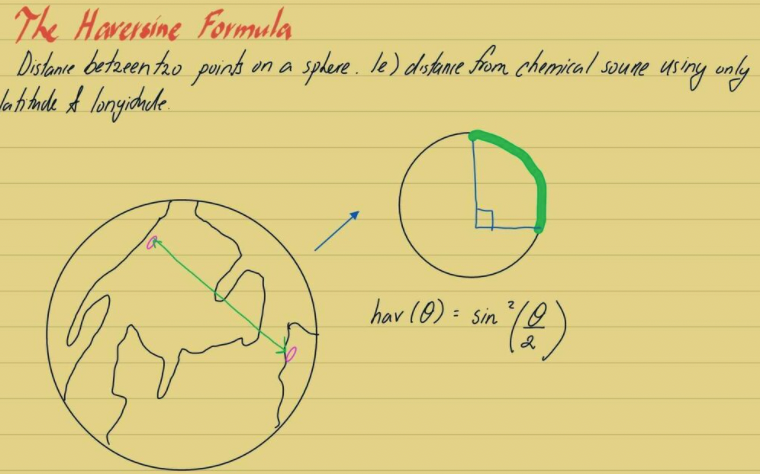 The Haversine Formula
Distance between two points on a sphere. Ie) distance from chemical source using only
latitude & longitude.
a
b
hav(θ) = sin²(θ/2)